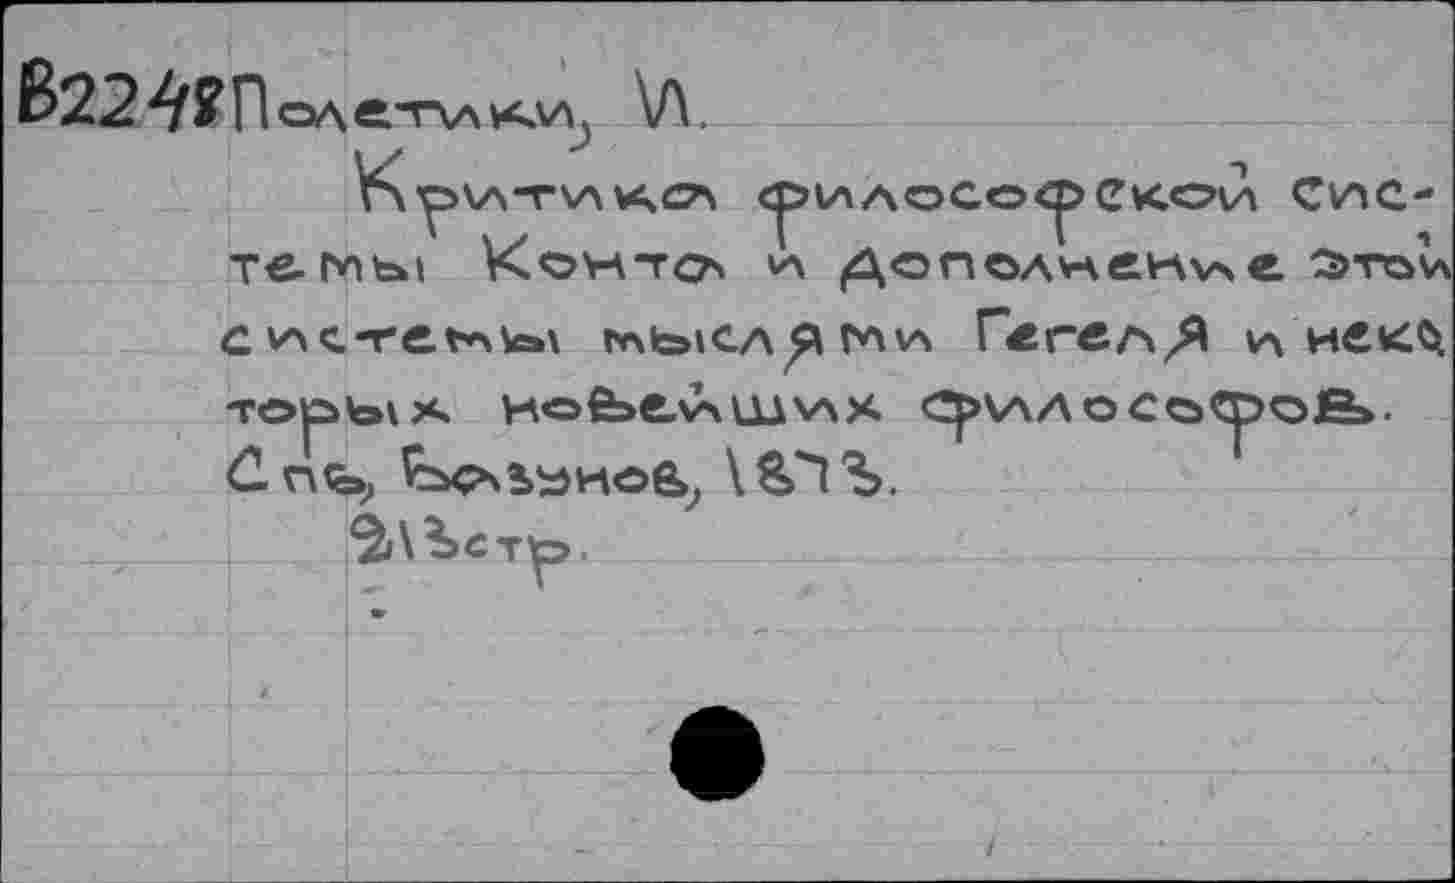 В2248 Полетики, И.
Критика философской сис-
темы Конта и дополнение этой
системы мыслями Гегеля и неко
торых новейших философов.
Спб, Базунов, 1873.
213 стр.